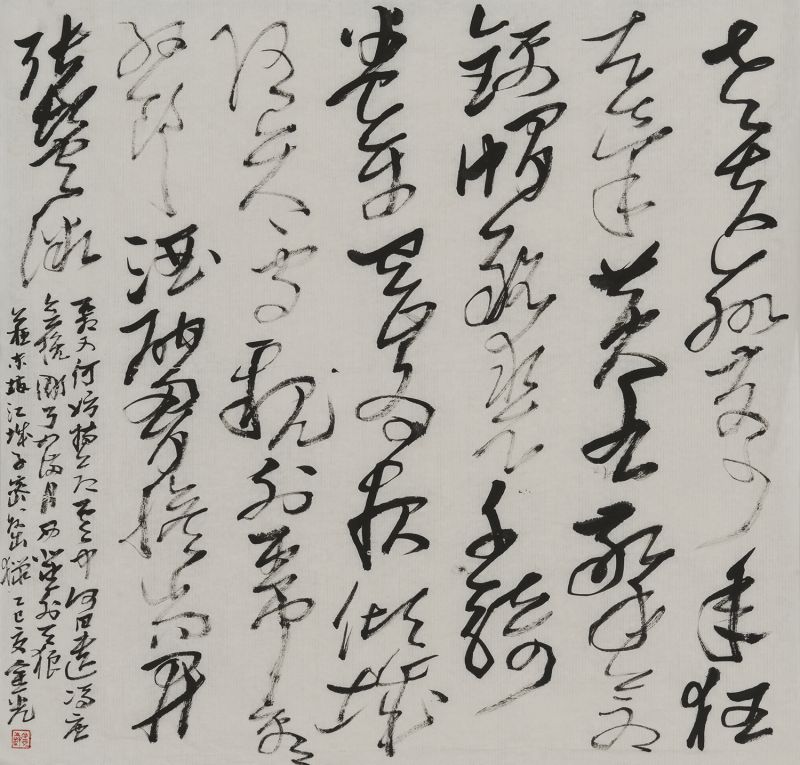 老夫聊發少年狂
左牽黃右擎蒼
錦帽貂裘千騎
卷平岡為報傾城
隨太守親射虎看
孫郎酒酣胸膽尚開
張鬢微
霜又何妨持節雲中何日遣馮唐
會挽雕弓如滿月西北望射天狼
蘇東坡江城子密州出獵己亥